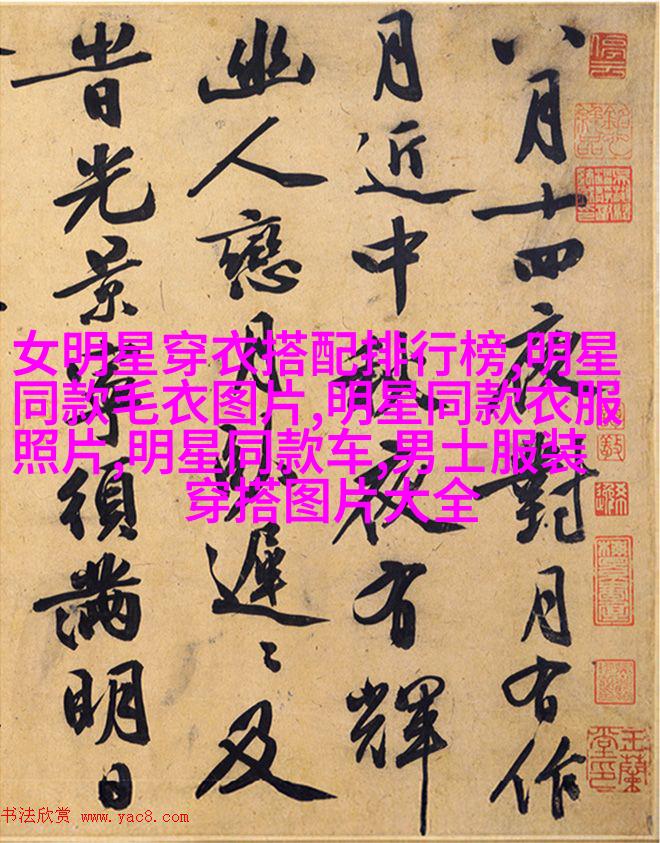 八月十四夜對月有作
月近中秋夜有輝
幽人戀月遲〻及
旹光景須滿明日
女明星穿衣搭配排行榜,明星
同款毛衣图片,明星同款衣服
照片,明星同款车,男士服装
穿搭图片大全
停雲
玉蘭堂印
书法欣赏 www.yac8.com